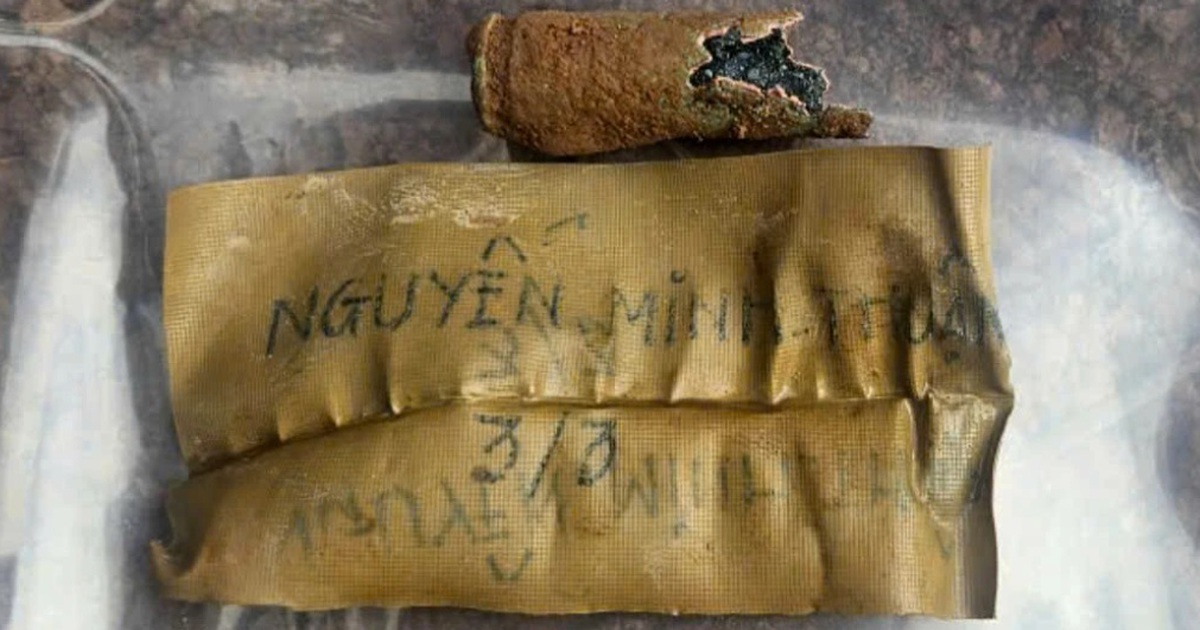 NGUYỄN MINH THUẬN
3/3